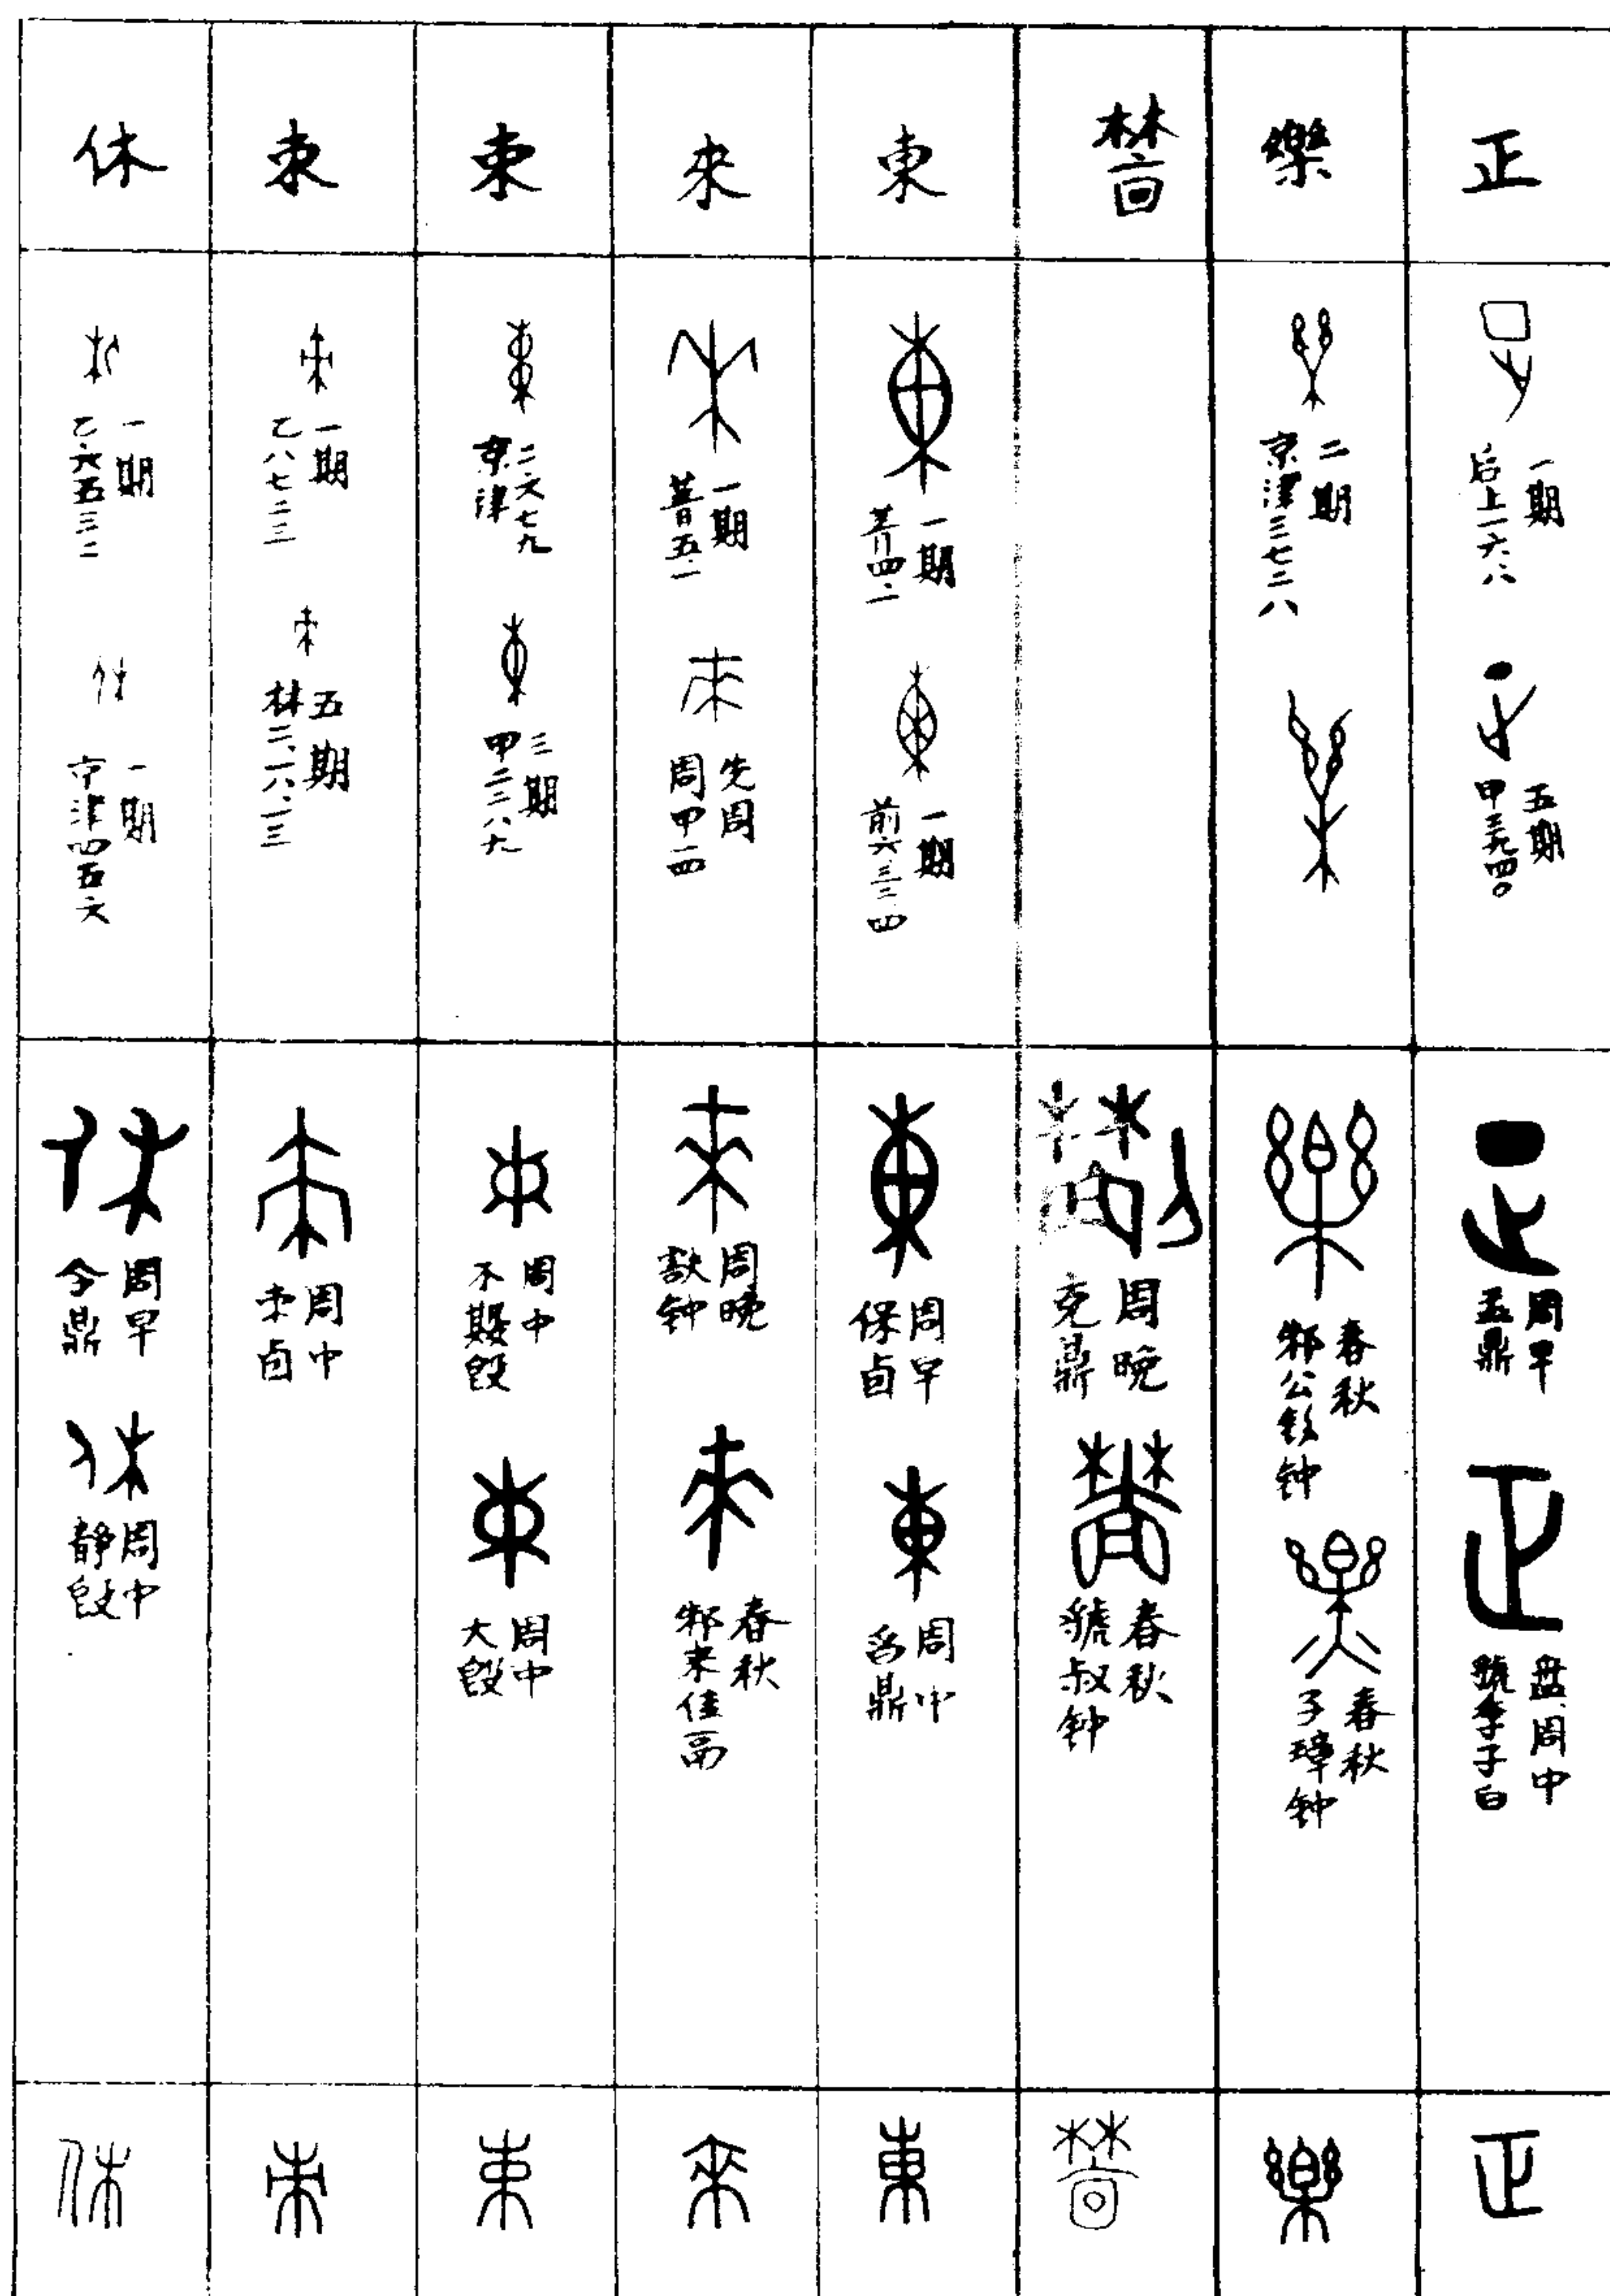 正
一期
后上一六、八
五期
甲三九四〇
周早
盂鼎
盘、周中
虢季子白
正
樂
二期
京津三七二八
春秋
邾公釛钟
春秋
子璋钟
樂
周晚
克鼎
春秋
虢叔钟
東
一期
菁四、一
一期
前六、三二、四
周早
保卣
周中
舀鼎
東
來
一期
菁五、一
先周
周甲一四
周晚
㝬钟
春秋
邾來隹鬲
來
束
二六七九
京津
三期
甲二二八九
周中
不𡢁𣪘
周中
大𣪘
束
朿
一期
乙八七二三
五期
林二、一八、一三
周中
朿卣
朿
休
一期
乙六五三二
一期
京津四五六
周早
令鼎
周中
靜𣪘
休